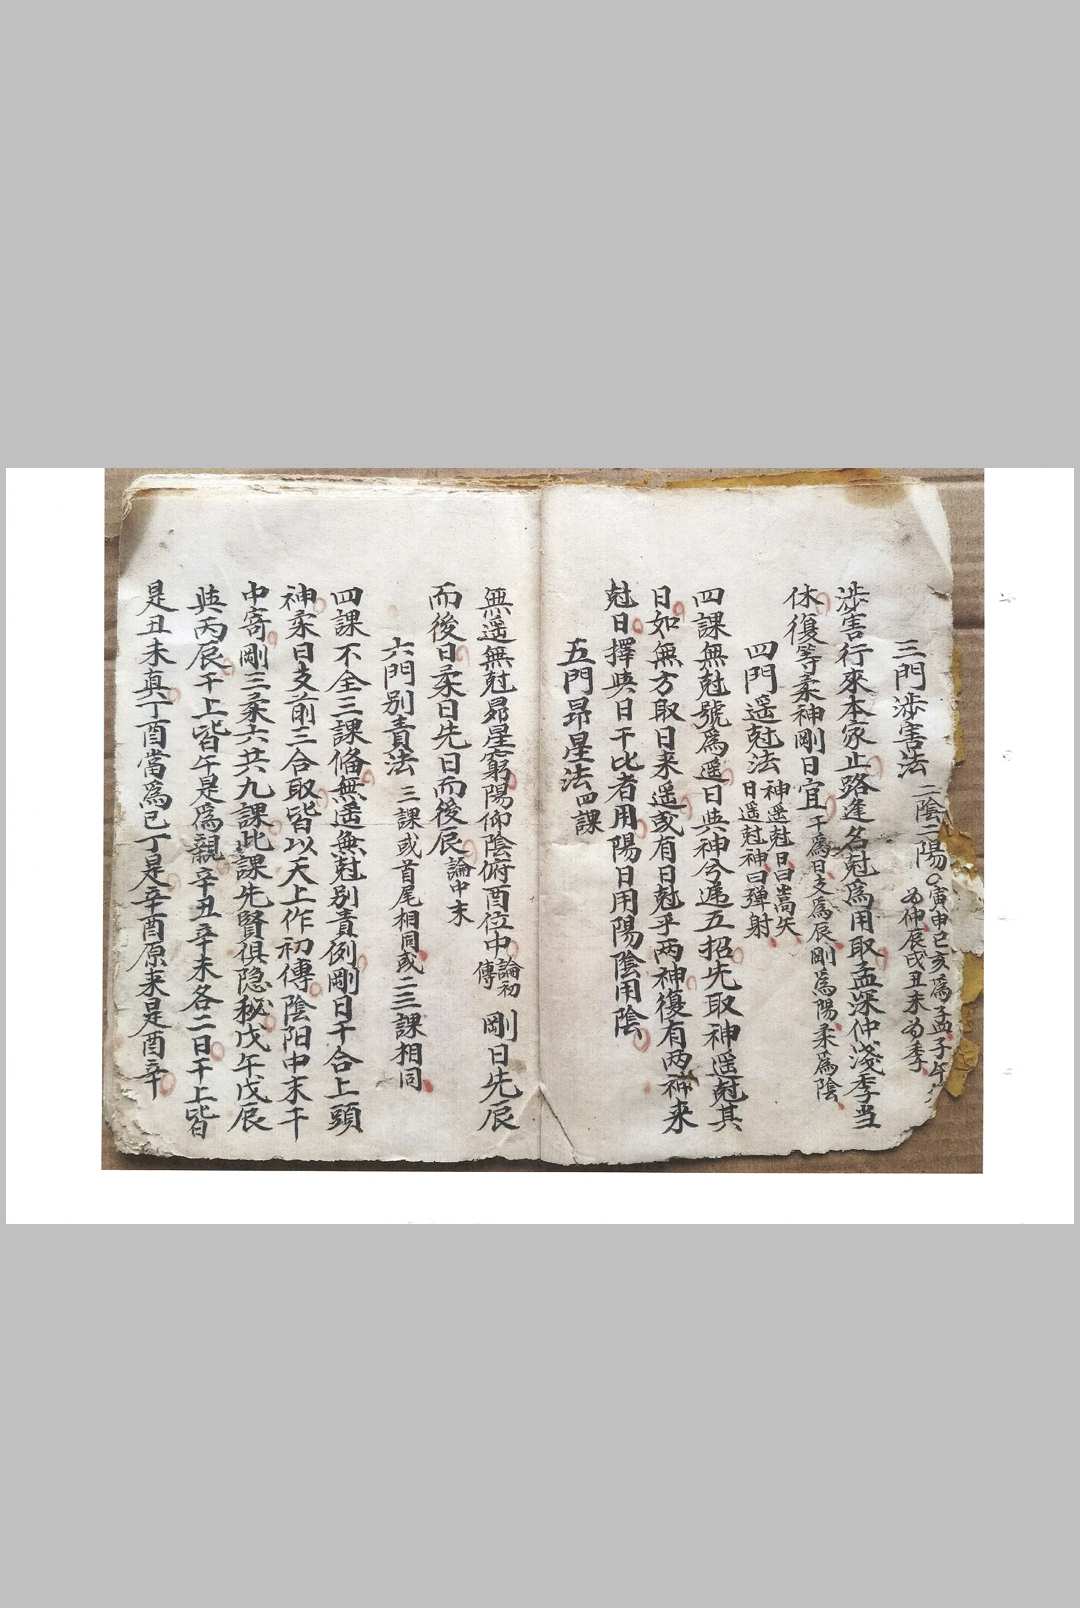 三門涉害法 二陰二陽 寅申巳亥為孟子午
為仲辰戌丑未為季
涉害行來本家止路逢名尅為用取孟深仲淺季当
休復等柔神剛日宜 干為日支為辰剛為陽柔為陰
四門遥尅法 神遥尅日曰蒿矢
日遥尅神曰彈射
四課無尅號為遥日與神兮逓五招先取神遥尅其
日如無方取日来遥或有日尅乎两神復有两神来
尅日擇與日干比者用陽日用陽陰用陰
五門昴星法 四課
無遥無尅昴星窮陽仰陰俯酉位中 論初
傳 剛日先辰
而後日柔日先日而後辰 論中末
六門别責法 三課或首尾相同或二三課相同
四課不全三課俻無遥無尅别責例剛日干合上頭
神柔日支前三合取皆以天上作初傳陰阳中末干
中寄剛三柔六共九課此課先賢俱隐秘戊午戊辰
與丙辰干上皆午是為親辛丑辛未各二日干上皆
是丑未真丁酉當為已丁是辛酉原来是酉辛